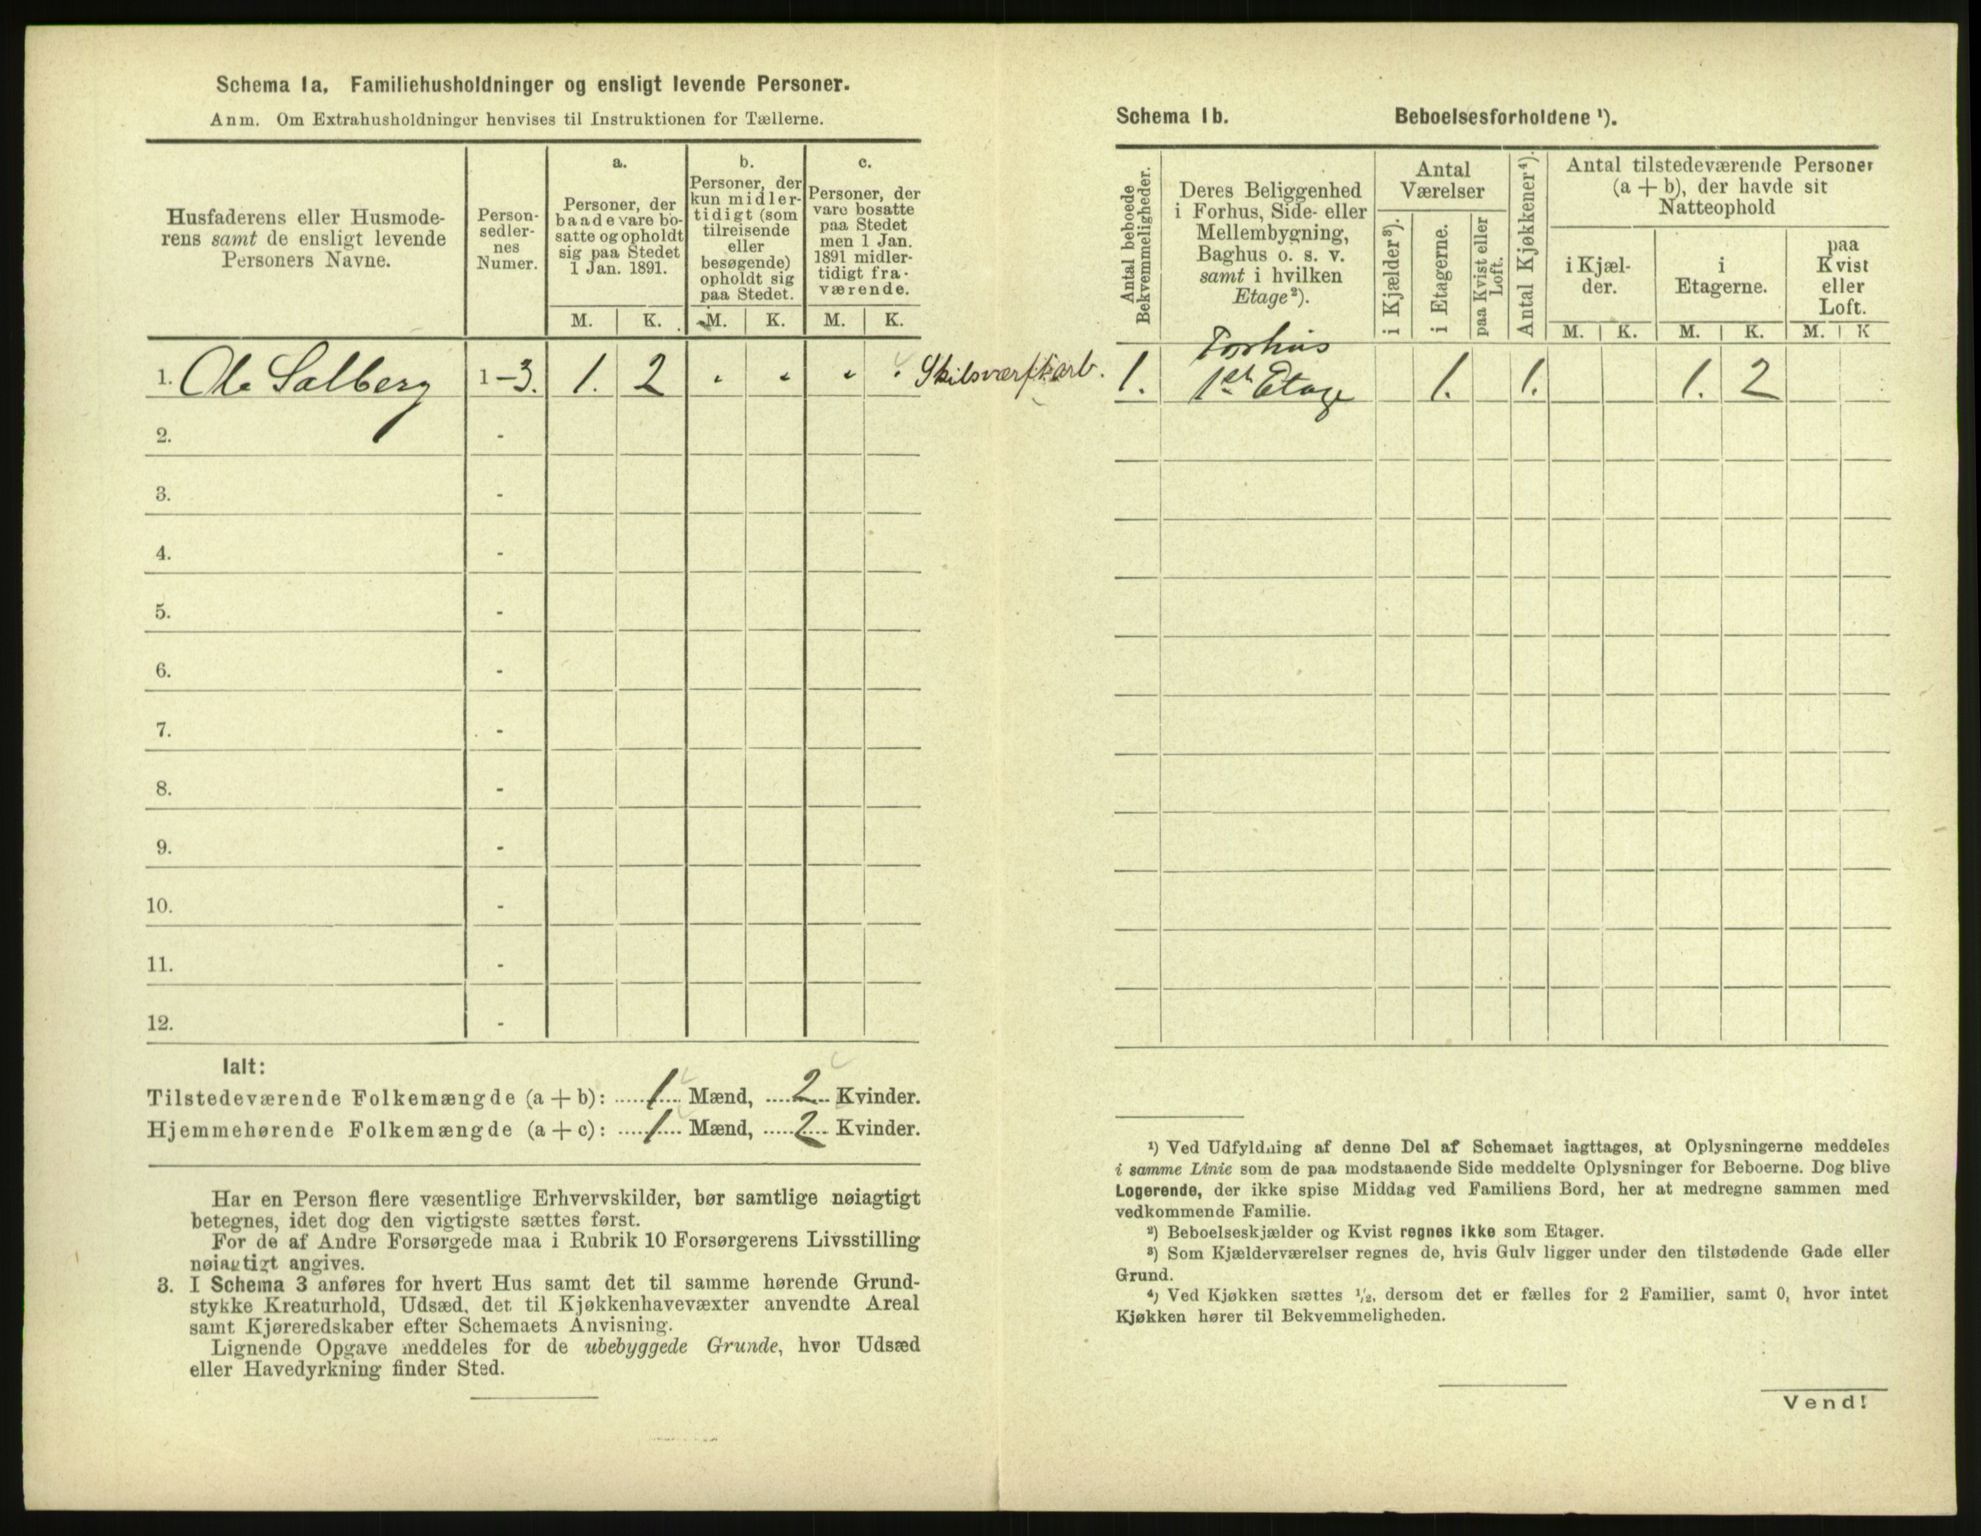 Schema 1a. Familiehusholdninger og ensligt levende Personer.
Anm. Om Extrahusholdninger henvises til Instruktionen for Tællerne.
Husfaderens eller Husmode-
rens samt de ensligt levende
Personers Navne.
Person-
sedler-
nes
Numer.
a.
Personer, der
baade vare bo-
satte og opholdt
sig paa Stedet
1 Jan. 1891.
b.
Personer, der
kun midler-
tidigt (som
tilreisende
eller
besøgende)
opholdt sig
paa Stedet.
c.
Personer, der
vare bosatte
paa Stedet
men 1 Jan.
1891 midler-
tidigt fra-
værende.
M. K. M. K. M. K.
1. Ole Salberg 1-3. 1. 2 " " " "
2. -
3. -
4. -
5. -
6. -
7. -
8. -
9. -
10. -
11. -
12. -
Ialt:
Tilstedeværende Folkemængde (a + b): 1 Mænd, 2 Kvinder.
Hjemmehørende Folkemængde (a + c): 1 Mænd, 2 Kvinder.
Har en Person flere væsentlige Erhvervskilder, bør samtlige nøiagtigt
betegnes, idet dog den vigtigste sættes først.
For de af Andre Forsørgede maa i Rubrik 10 Forsørgerens Livsstilling
nøiagtigt angives.
3. I Schema 3 anføres for hvert Hus samt det til samme hørende Grund-
stykke Kreaturhold, Udsæd, det til Kjøkkenhavevæxter anvendte Areal
samt Kjøreredskaber efter Schemaets Anvisning.
Lignende Opgave meddeles for de ubebyggede Grunde, hvor Udsæd
eller Havedyrkning finder Sted.
Schema 1b. Beboelsesforholdene ¹).
Antal beboede
Bekvemmeligheder.
Deres Beliggenhed
i Forhus, Side- eller
Mellembygning,
Baghus o. s. v.
samt i hvilken
Etage²).
Antal
Værelser
i Kjælder³).
i Etagerne.
paa Kvist eller
Loft.
Antal Kjøkkener⁴).
Antal tilstedeværende Personer
(a + b), der havde sit
Natteophold
i Kjæl-
der.
i
Etagerne.
paa
Kvist
eller
Loft.
M. K. M. K. M. K
Forhus
1. 1st Etage 1. 1. 1. 2
¹) Ved Udfyldning af denne Del af Schemaet iagttages, at Oplysningerne meddeles
i samme Linie som de paa modstaaende Side meddelte Oplysninger for Beboerne. Dog blive
Logerende, der ikke spise Middag ved Familiens Bord, her at medregne sammen med
vedkommende Familie.
²) Beboelseskjælder og Kvist regnes ikke som Etager.
³) Som Kjælderværelser regnes de, hvis Gulv ligger under den tilstødende Gade eller
Grund.
⁴) Ved Kjøkken sættes ½, dersom det er fælles for 2 Familier, samt 0, hvor intet
Kjøkken hører til Bekvemmeligheden.
Vend!